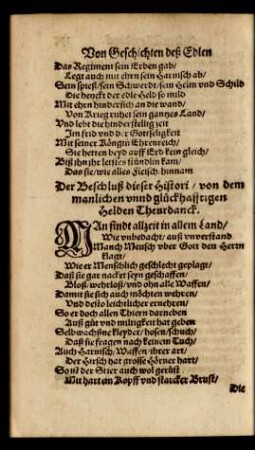 Von Geschichten deß Edlen
Das Regiment sein Erben gab/
Legt auch mit ehrn sein Harnisch ab/
Sein spieß/sein Schwerdt/sein Helm und Schild
Die henckt der edle Held so mild
Mit ehrn hindersich an die wand/
Von Krieg ruhet sein gantzes Land/
Vnd lebt die hinderstellig zeit
Im frid vnd der Gottseligkeit
Mit seiner Köngin Ehrenreich/
Sie hetten beyd auff Erd kein gleich/
Biß jhn jhr letstes stündlin kam/
Das sie/wie alles Fleisch hinnam
Der Beschluß dieser Histori / von dem
manlichen vnnd glückhafftigen
Helden Theurdanck.
MAn findt allzeit in allem Land/
Wie vnbedacht/ auß vnverstand
Manch Mensch vber Gott den Herrn
klagt/
Wie er Menschlich geschlecht geplagt/
Daß sie gar nacket seyn geschaffen/
Bloß/ wehrloß/ vnd ohn alle Waffen/
Damit sie sich auch möchten wehren/
Vnd desto leichtlicher ernehren/
So er doch allen Thiern darneben
Auß güt vnd miltigkeit hat geben
Selbwachßne kleyder/ hosen/ schuch/
Daß sie fragen nach keinem Tuch/
Auch Harnisch/ Waffen jhrer art/
Der Hirsch hat grosse Hörner hart/
So ist der Stier auch wol gerüst
Mit hartem Kopff vnd starcker Brust/
Die